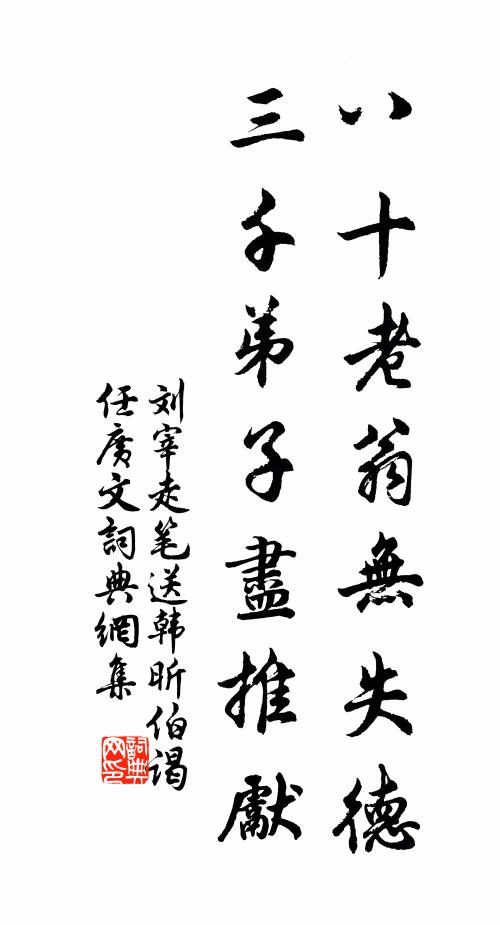 八十老翁無失德
三千弟子盡推獻
刘宰走笔送韩昕伯谒
任廣文詞典網集
詞典
网印